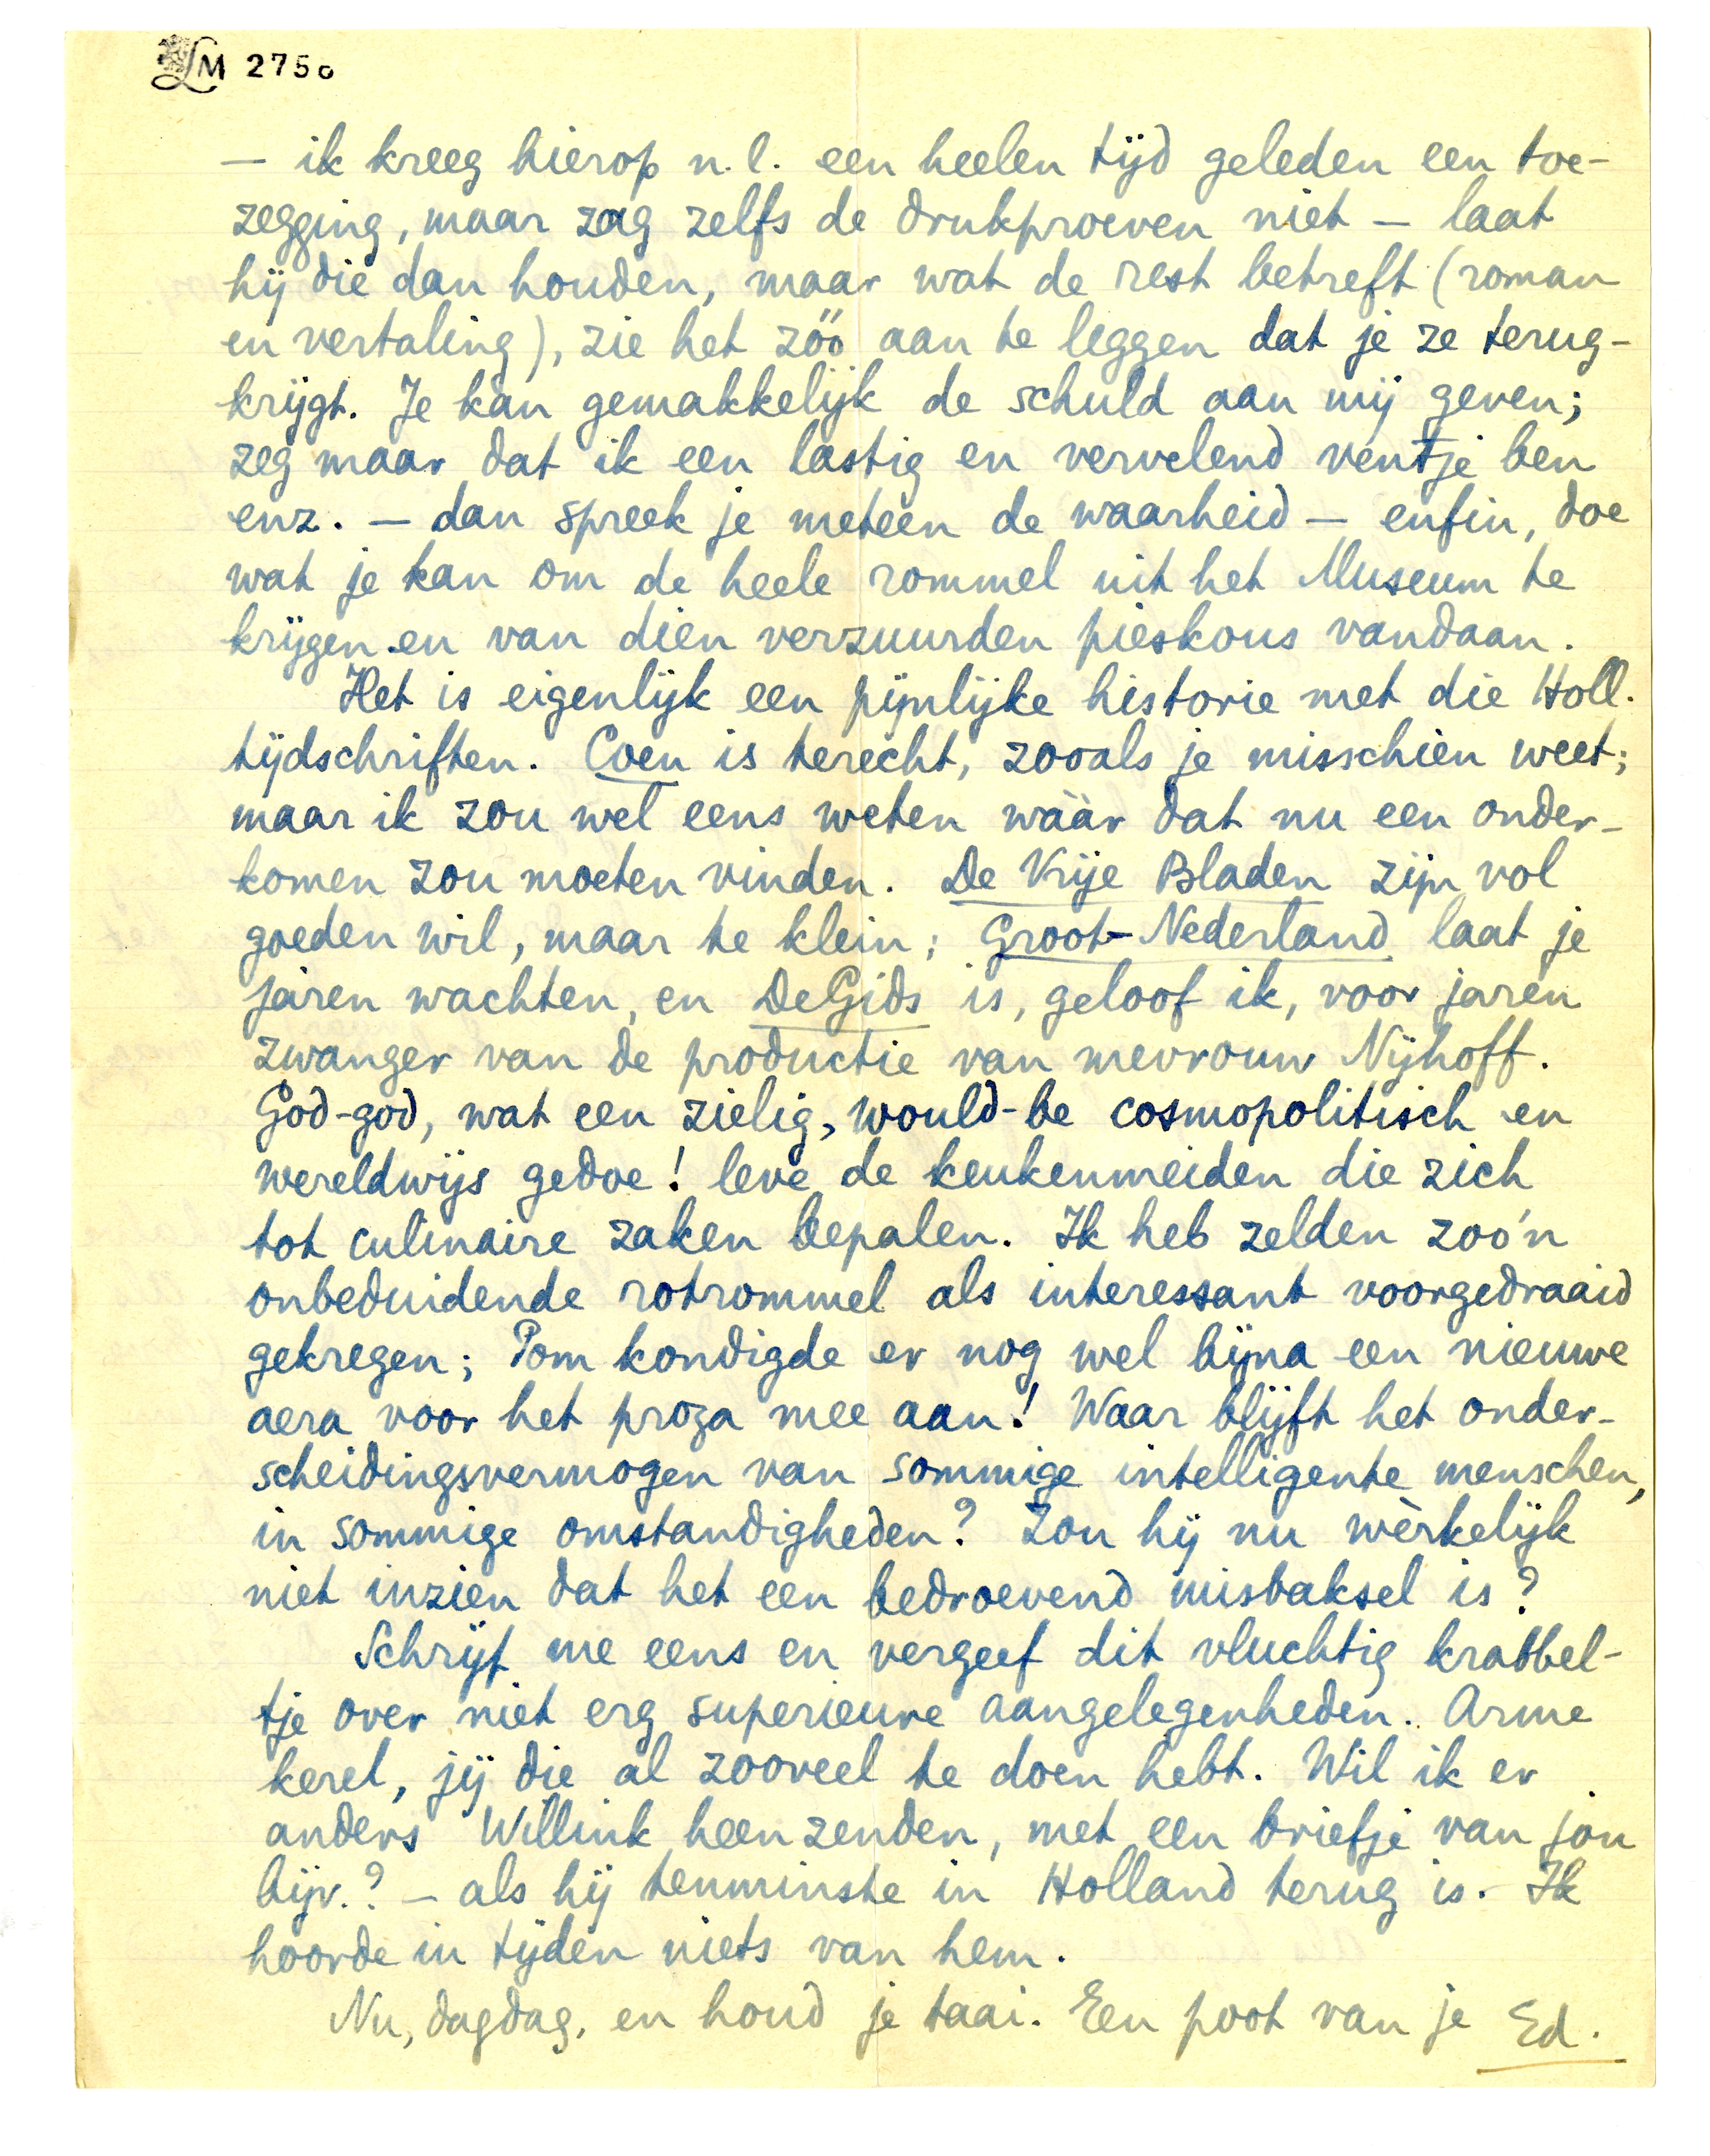 LM 2750
— ik kreeg hierop n.l. een heelen tijd geleden een toe-
zegging, maar zag zelfs de drukproeven niet — laat
hij die dan houden, maar wat de rest betreft (roman
en vertaling), zie het zóó aan te leggen dat je ze terug-
krijgt. Je kan gemakkelijk de schuld aan mij geven;
zeg maar dat ik een lastig en vervelend ventje ben
enz. — dan spreek je meteen de waarheid — enfin, doe
wat je kan om de heele rommel uit het Museum te
krijgen en van dien verzuurden pieskous vandaan.
Het is eigenlijk een pijnlijke historie met die Holl.
tijdschriften. Coen is terecht, zooals je misschien weet;
maar ik zou wel eens weten wààr dat nu een onder-
komen zou moeten vinden. De Vrije Bladen zijn vol
goeden wil, maar te klein; Groot-Nederland laat je
jaren wachten, en De Gids is, geloof ik, voor jaren
zwanger van de productie van mevrouw Nijhoff.
God-god, wat een zielig, would-be cosmopolitisch en
wereldwijs gedoe! leve de keukenmeiden die zich
tot culinaire zaken bepalen. Ik heb zelden zoo'n
onbeduidende rotrommel als interessant voorgedraaid
gekregen; Pom kondigde er nog wel bijna een nieuwe
aera voor het proza mee aan! Waar blijft het onder-
scheidingsvermogen van sommige intelligente menschen,
in sommige omstandigheden? Zou hij nu wèrkelijk
niet inzien dat het een bedroevend misbaksel is?
Schrijf me eens en vergeef dit vluchtig krabbel-
tje over niet erg superieure aangelegenheden. Arme
kerel, jij die al zooveel te doen hebt. Wil ik er
anders Willink heen zenden, met een briefje van jou
bijv.? — als hij tenminste in Holland terug is. Ik
hoorde in tijden niets van hem.
Nu, dagdag, en houd je taai. Een poot van je Ed.